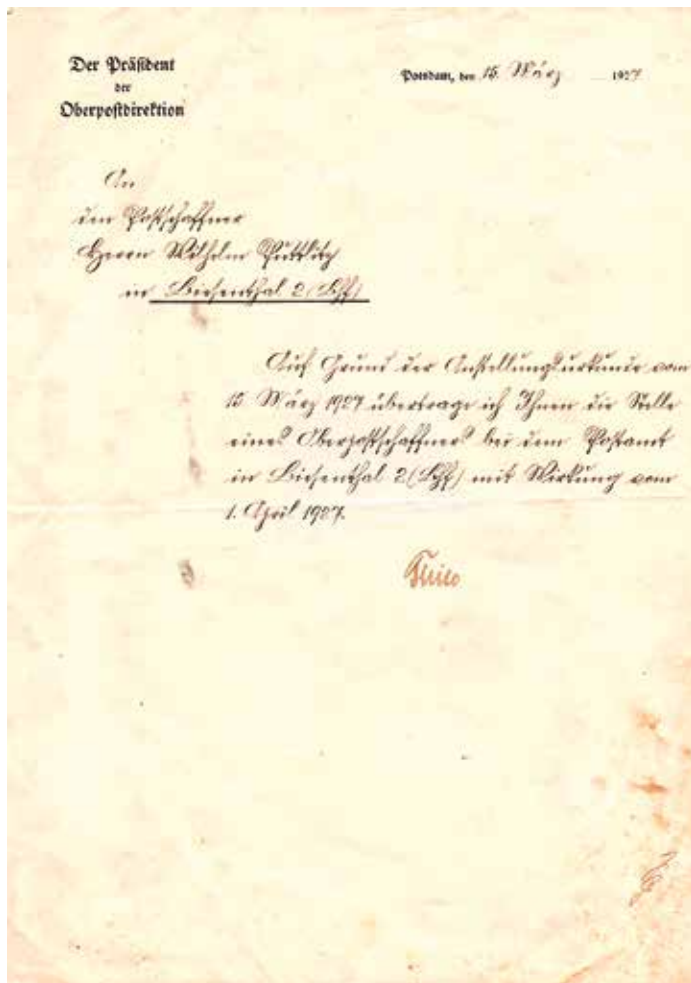 Der Präsident
der
Oberpostdirektion
Potsdam, den 15. März 1927
An
den Postschaffner
Herrn Wilhelm Puttlitz
in Biesenthal 2 (Bhf)
Auf Grund der Anstellungsurkunde vom
15 März 1927 übertrage ich Ihnen die Stelle
eines Oberpostschaffners bei dem Postamt
in Biesenthal 2 (Bhf) mit Wirkung vom
1. April 1927.